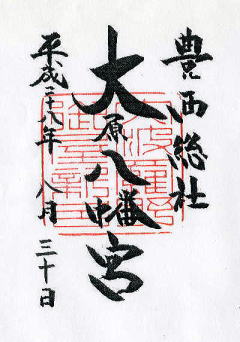 豊西総社
大原八幡宮
平成二十八年 八月 三十日